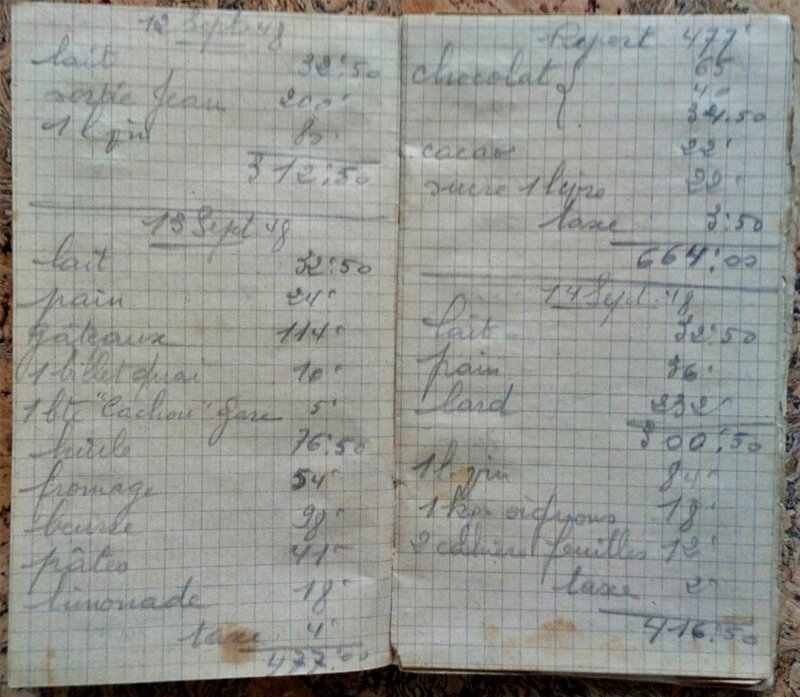 12 Sept. 48
lait 32:50
Jean 200
1 l vin 80
312:50
13 Sept 48
lait 32:50
pain 24
gâteaux 114
1 billet quai 10
1 bte "Cachou" Gare 5
huile 76:50
fromage 54
beurre 98
pâtes 41
limonade 18
taxe 4
477:00
Report 477
chocolat { 65
40
34.50
cacao 22
sucre 1 livre 22
taxe 3:50
664:00
14 Sept. 48
lait 32:50
pain 36
lard 232
300:50
1 l. vin 84
1 kgr oignons 18
2 cahiers feuilles 12
taxe 2
416:50